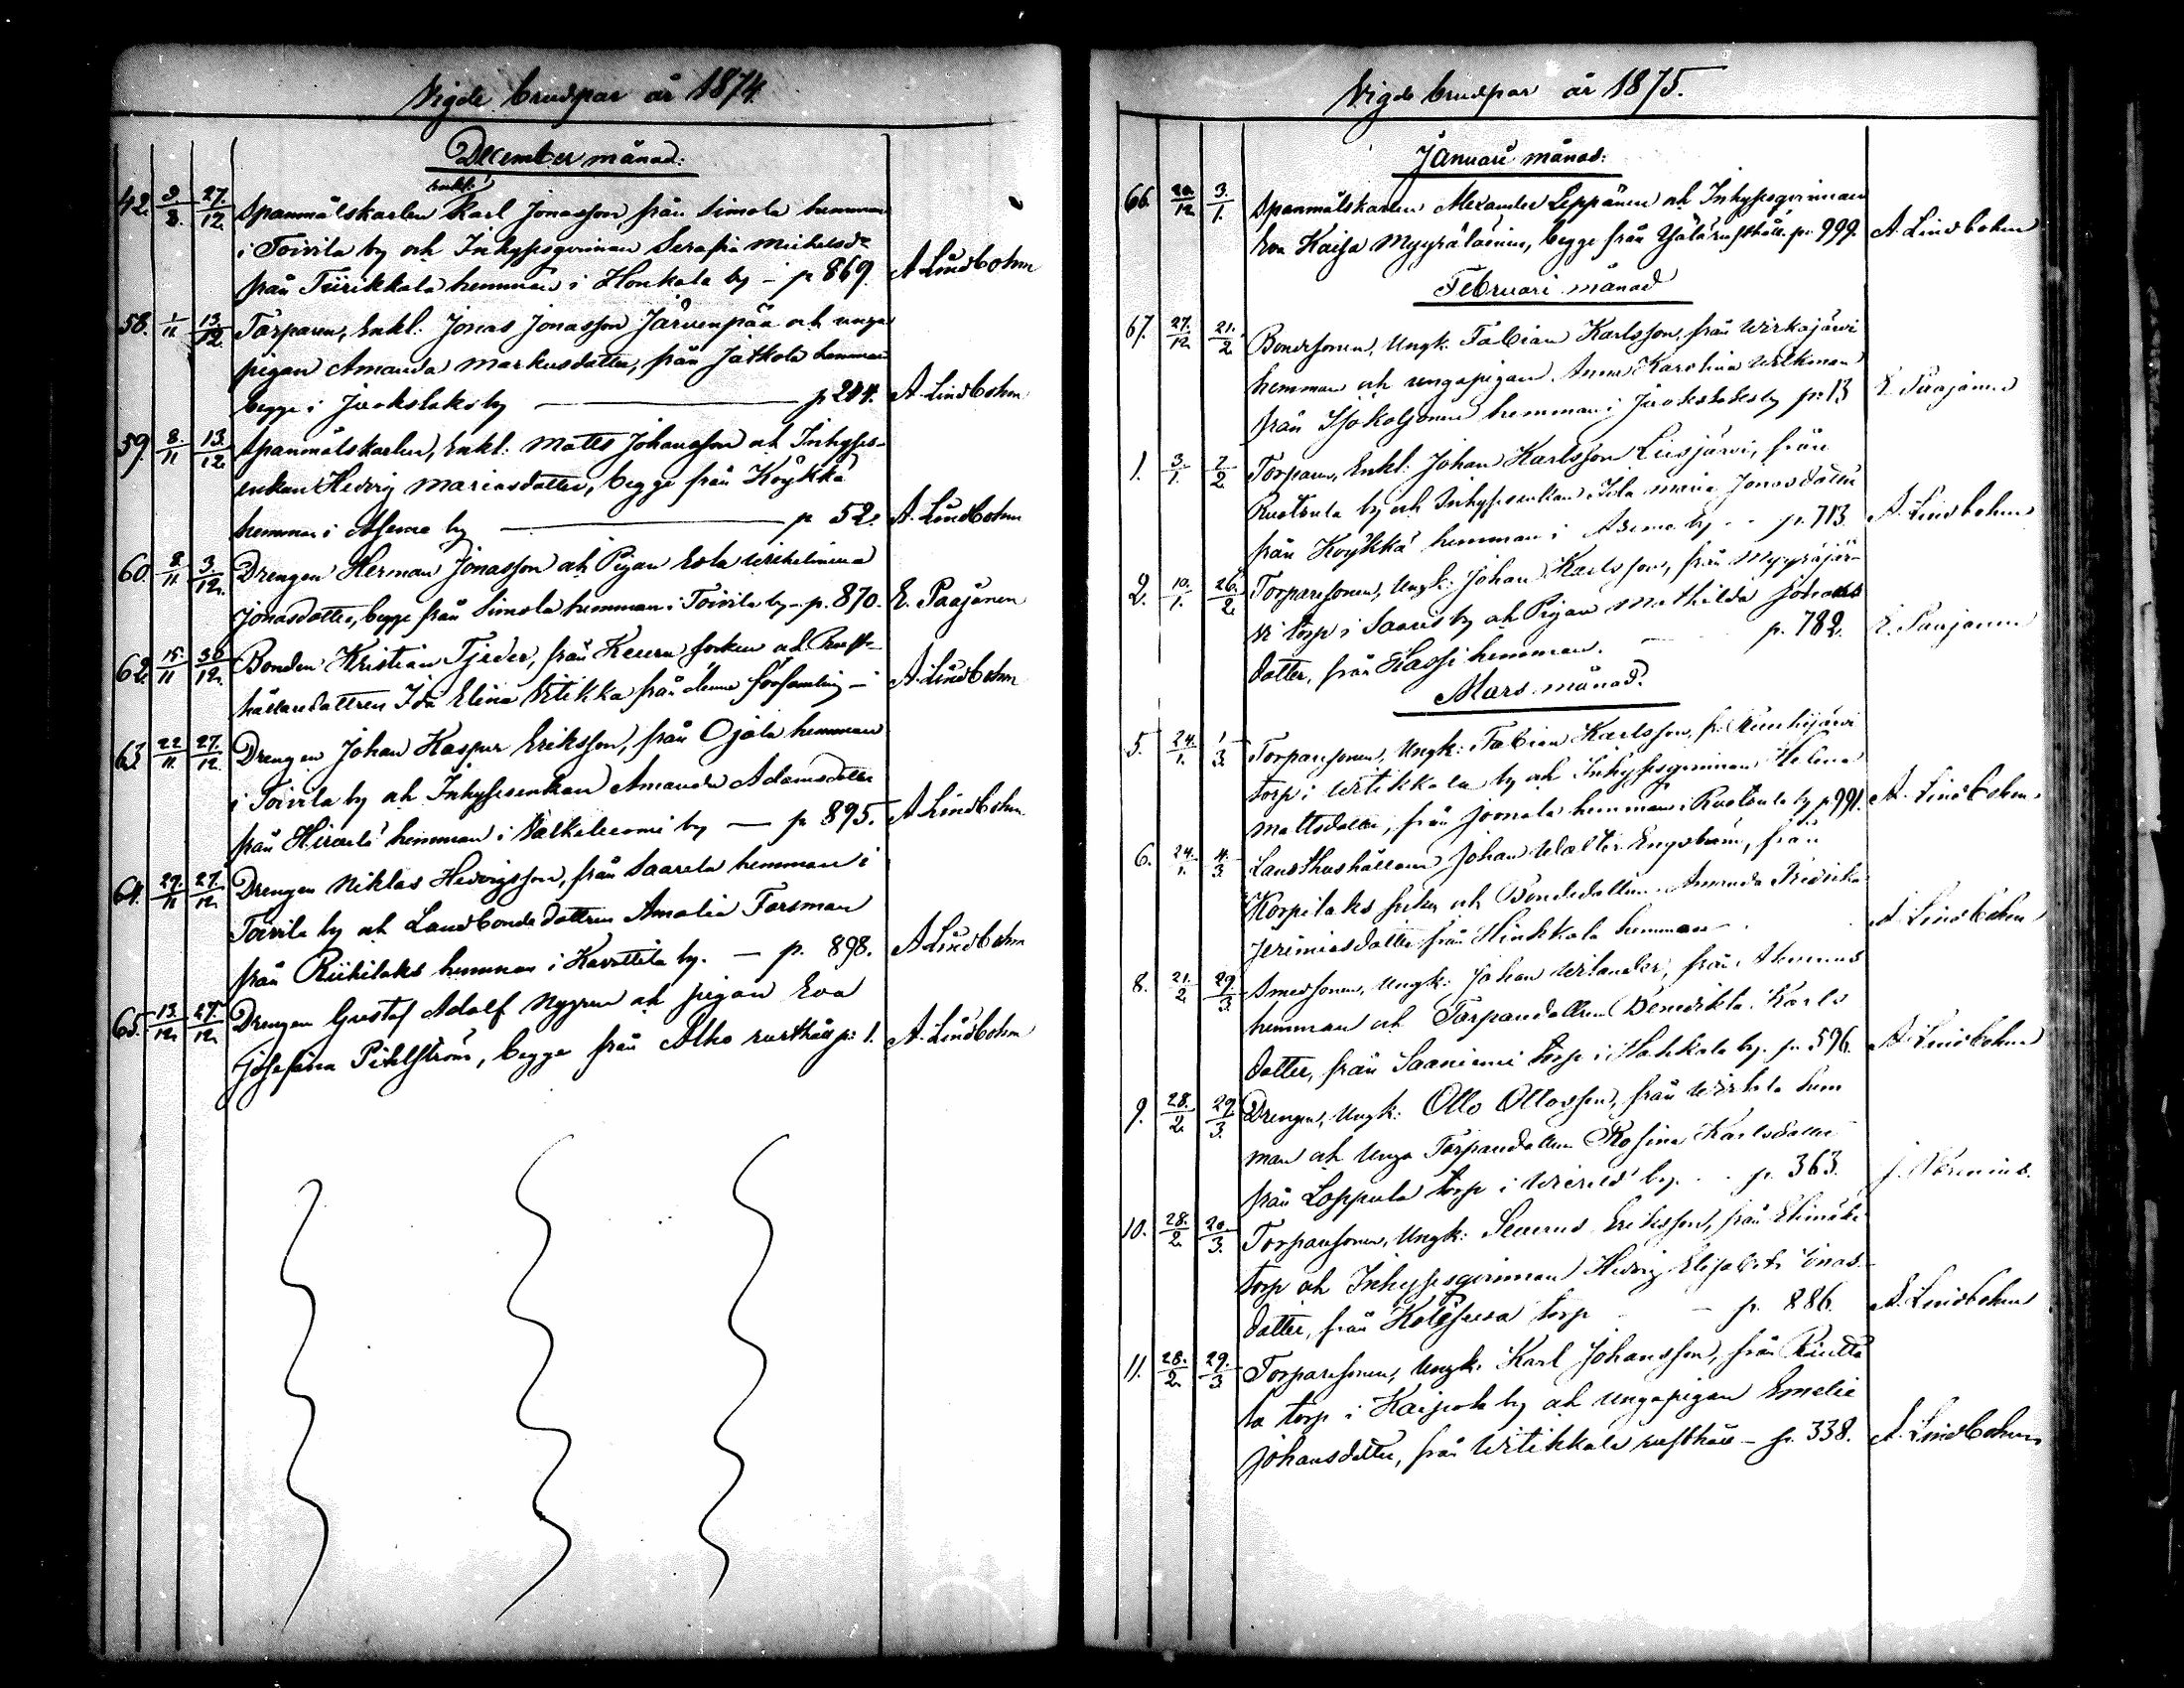 Vigde brudpar år 1874.
December månad:
42. 9/8. 27./12. Spanmålskarlen enkl: Karl Jonasson från Simola hemman
i Toivila by och Inhysesqvinnan Serafia Michelsdr
från Tiirikkala hemman i Honkala by – p 869. A Lindbohm
58. 1/11 13./12. Torparen, Enkl: Jonas Jonasson Järvenpää och unga
pigan Amanda Markusdotter, från Jatkola hemman
begge i Juokslaks by — p 244. A. Lindbohm
59. 8./11 13./12. Spanmålskarlen, Enkl: Matts Johansson och Inhyses-
enkan Hedvig Mariasdotter, begge från Köykkä
hemman i Asema by — p 52. A. Lindbohm
60. 8./11. 3./12. Drengen Herman Jonasson och Pigan Eva Wilhelmina
Jonasdotter, begge från Simola hemman i Toivila by – p. 870. E. Paajanen
62. 15./11 30/12. Bonden Kristian Tjeder, från Keuru socken och Rust-
hållaredottren Ida Elina Utikka från denna församling – A. Lindbohm
63. 22/11. 27./12. Drengen Johan Kasper Eriksson, från Ojala hemman
i Toivila by och Inhysesenkan Amanda Adamsdotter
från Hirvelä hemman i by — p 895. A Lindbohm
64. 29./11 27./12. Drengen Niklas Hedvigsson, från Saarela hemman i
Toivila by och Landbondedottren Amalia Forsman
från Riihilaks hemman i Kavettila by. — p. 898. A Lindbohm
65. 13./12. 27./12. Drengen Gustaf Adolf Nygren och pigan Eva
Josefina Pihlström, begge från Alho rusthåll p: 1. A. Lindbohm
Vigde brudpar år 1875.
Januari månad:
66. 20./12. 3./1. Spanmålskarlen Alexander Leppänen och Inhysesqvinnan
Eva Kaisa Myyräläinen, begge från Yjälä rusthåll p. 999. A. Lindbohm
Februari månad
67. 27./12. 21./2. Bondesonen, Ungk: Fabian Karlsson, från Wirkajärvi
hemman och ungapigan Anna Karolina Wilkman
från hemman i Juokslaks by p: 13 E. Paajanen
1. 3./1. 7/2. Torparen, Enkl: Johan Karlsson Liesjärvi, från
Ruotsula by och Inhysesenkan Ida Maria Jonasdotter
från Köykkä hemman i Asema by – p. 713. A. Lindbohm
2. 10./1. 26./2. Torparesonen, Ungk: Johan Karlsson, från Myyräjär-
vi torp i Saaris by och Pigan Mathilda Johans
dotter, från Hassi hemman. – p. 782. E. Paajanen
Mars månad.
5. 24./1. 1/3. Torparesonen, Ungk: Fabian Karlsson, fr. Ruuhijärvi
torp i Utikkala by och Inhysesqvinnan Helena
Mattsdotter, från Joenala hemman i Ruotsula by p 991. A. Lindbohm
6. 24./1. 4./3. Landthushållaren Johan Walter Engström, från
Korpilaks socken och Bondedottren Amanda Fredrika
Jeremiasdotter från Hinkkala hemman – A Lindbohm
8. 21./2. 29./3. Smedsonen, Ungk: Johan Wilander, från
hemman och Torparedottren Benedikta Karls
dotter, från Saaniemi torp i Hahkala by. p. 596. A. Lindbohm
9. 28./2. 29/3. Drengen, Ungk: Otto Ottosson, från Wirkala hem
man och Unga Torparedottren Rosina Karlsdotter
från Loppula torp i by. – p. 363. J. Norenius.
10. 28./2. 20./3. Torparesonen, Ungk: Severus Eriksson, från
torp och Inhysesqvinnan Hedvig Elisabeth Jonas-
dotter, från torp – p. 886. A. Lindbohm
11. 28./2. 29./3 Torparesonen, Ungk. Karl Johansson, från Riutta
la torp i Kaipola by och Ungapigan Emelie
Johansdotter, från Utikkala rusthåll – p. 338. A. Lindbohm